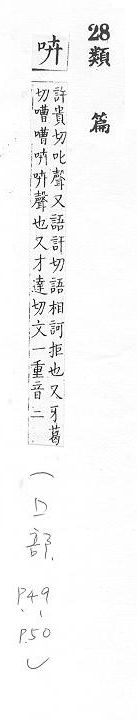 28類篇
㖕
許貴切叱聲又語訐切語相訶拒也又牙葛
切嘈嘈㖕㖕聲也又才達切文一重音二
(口部 P.49-P.50)